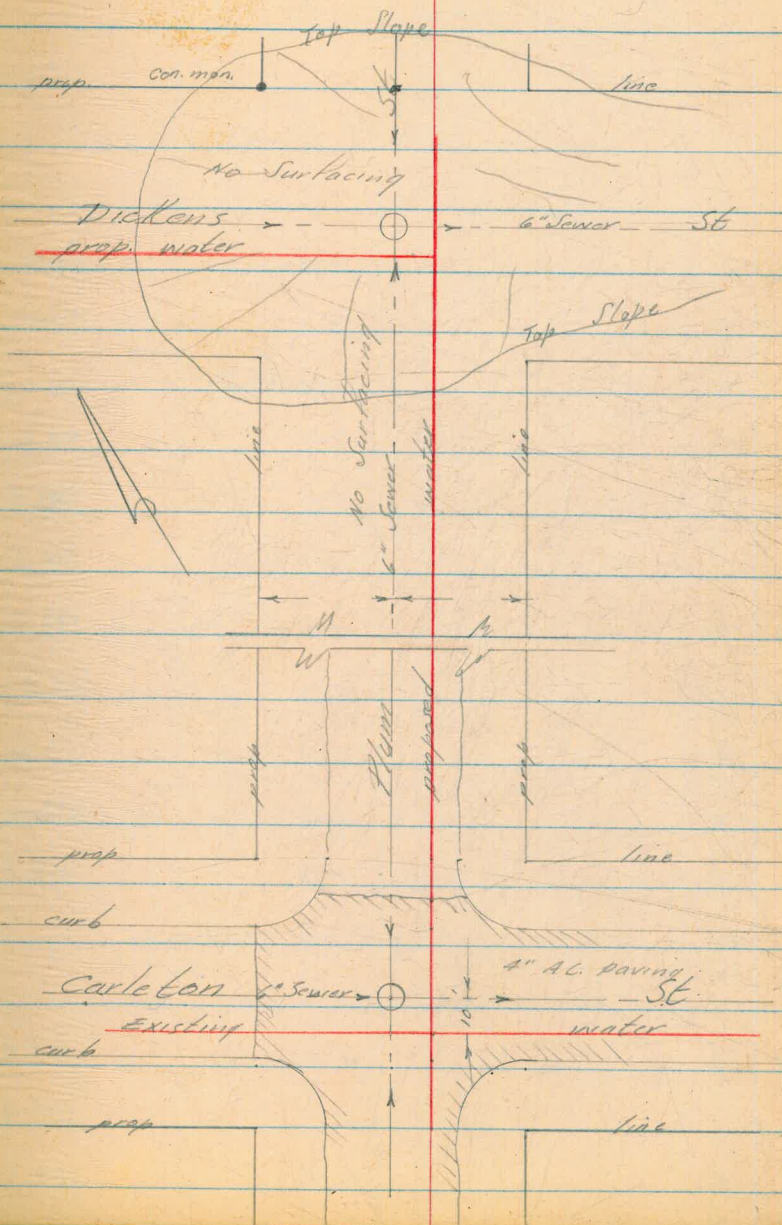 Top Slope
prop. con. mon. St line
No Surfacing
Dickens 6" Sewer St
prop. water
Top Slope
line No Surfacing 6" Sewer water line
prop Plum proposed prop
prop line
curb
4" A.C. paving
Carleton 6" Sewer St
10'
Existing water
curb
prop line